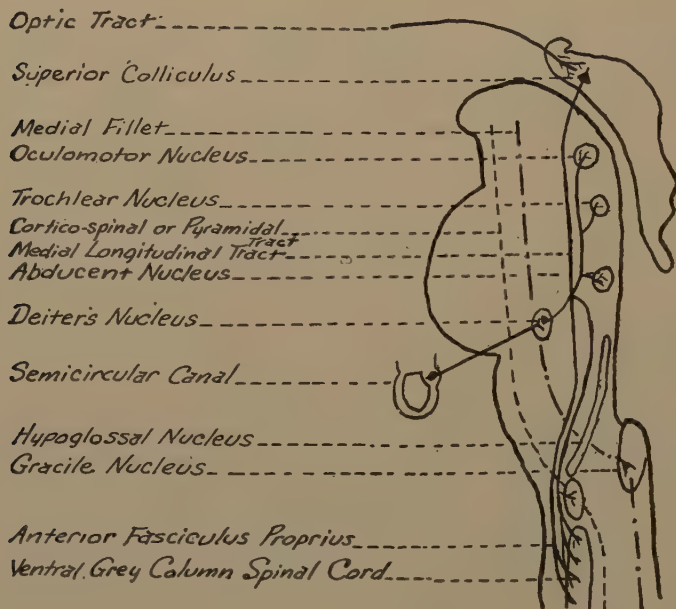 Optic Tract
Superior Colliculus
Medial Fillet
Oculomotor Nucleus
Trochlear Nucleus
Cortico-spinal or Pyramidal
Tract
Medial Longitudinal Tract
Abducent Nucleus
Deiter's Nucleus
Semicircular Canal
Hypoglossal Nucleus
Gracile Nucleus
Anterior Fasciculus Proprius
Ventral Grey Column Spinal Cord